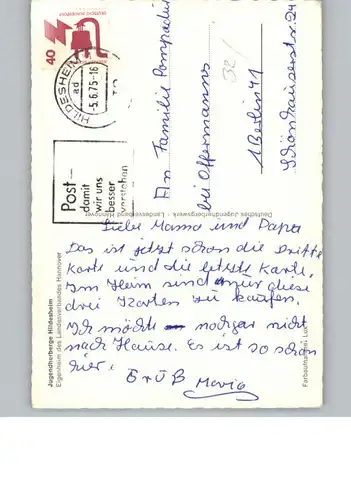 40
DEUTSCHE BUNDESPOST
HILDESHEIM
ad
-5.6.75-16
Post-
damit
wir uns
besser
verstehen
An Familie Pompadur
bei Offermanns
1 Berlin 41
Schönhauserstr. 24
32/
Deutsches Jugendherbergswerk - Landesverband Hannover
Liebe Mama und Papa
Das ist jetzt schon die Dritte
Karte und die letzte Karte.
Im Heim sind nur diese
drei Karten zu kaufen.
Ich möcht nochgar nicht
nach Hause. Es ist so schön
hier.
G+ü B Mario
Jugendherberge Hildesheim
Eigenheim des Landesverbandes Hannover
Farbaufnahme: